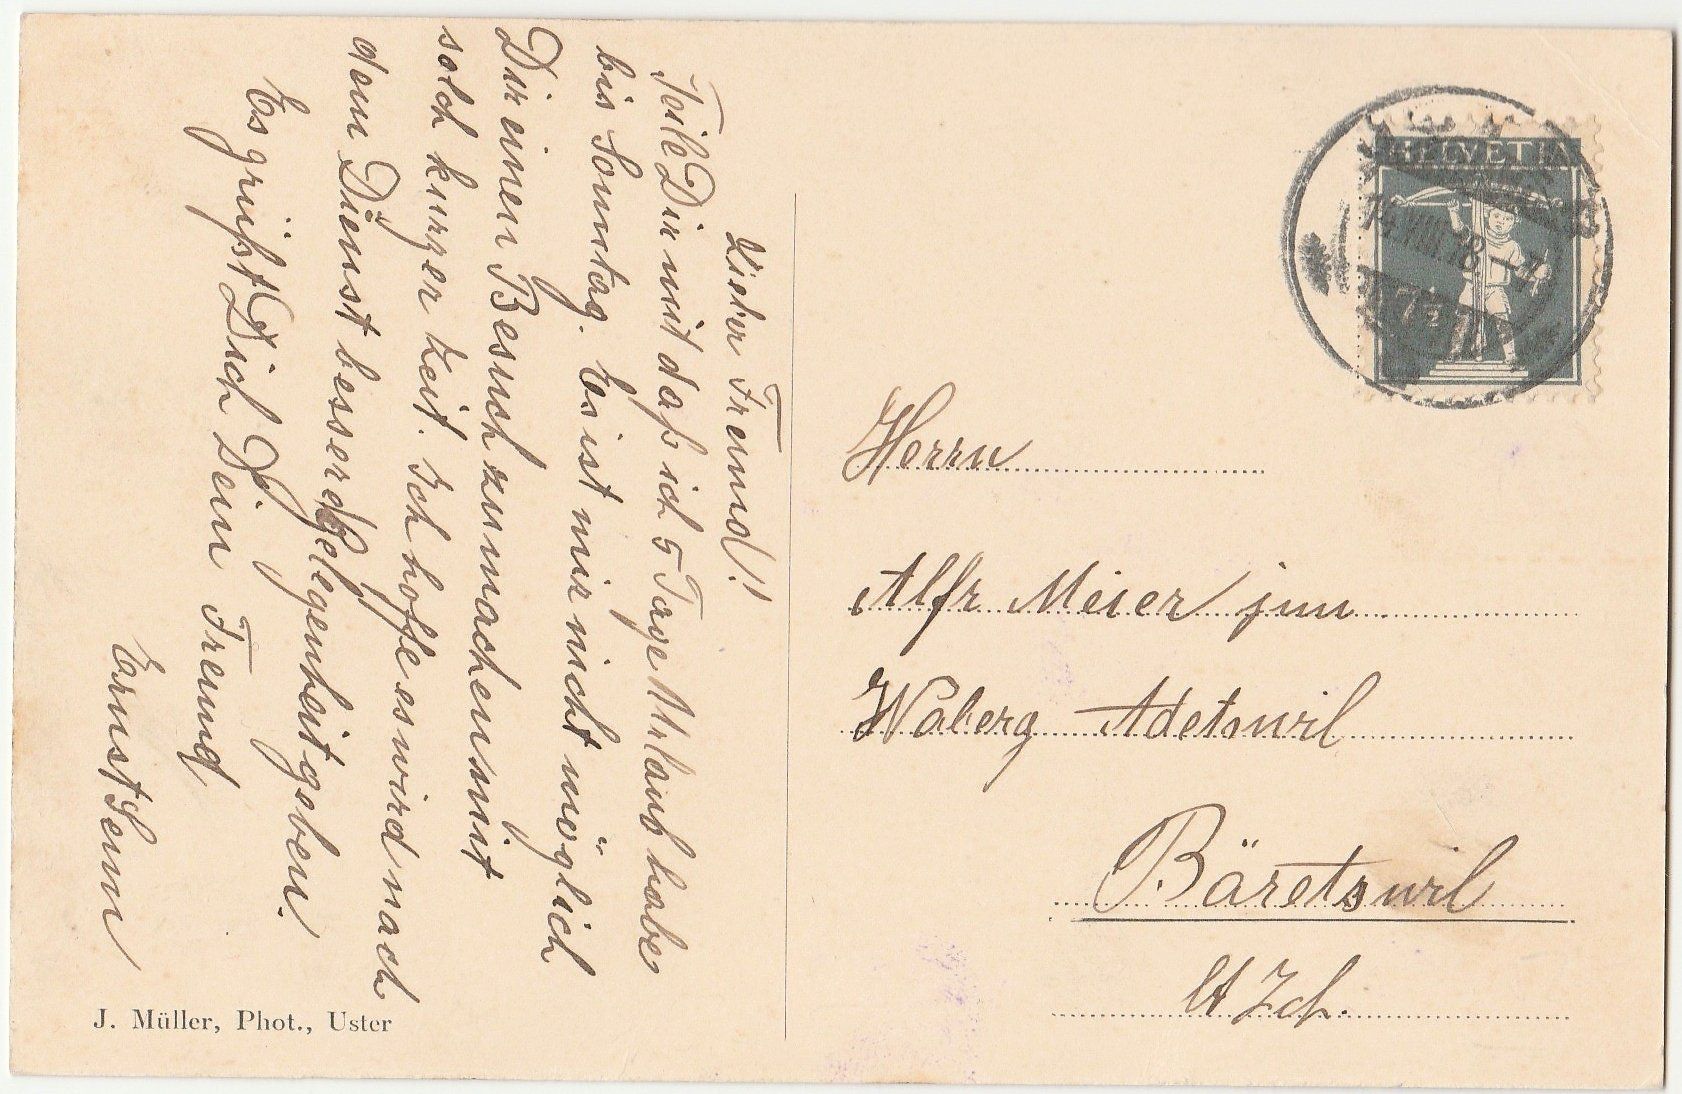 Lieber Freund!
Teile Dir mit daß ich 5 Tage Urlaub habe
bis Sonntag. Es ist mir nicht möglich
Dir einen Besuch zu machen mit
solch kurzer Zeit. Ich hoffe es wird nach
dem Dienst besser Gelegenheit geben.
Es grüßt Dich Dein Freund
Ernst
J. Müller, Phot., Uster
HELVETIA
14.VIII.18
7½
Herrn
Alfr Meier jun
Adetswil
Bäretswil
Kt Zch.